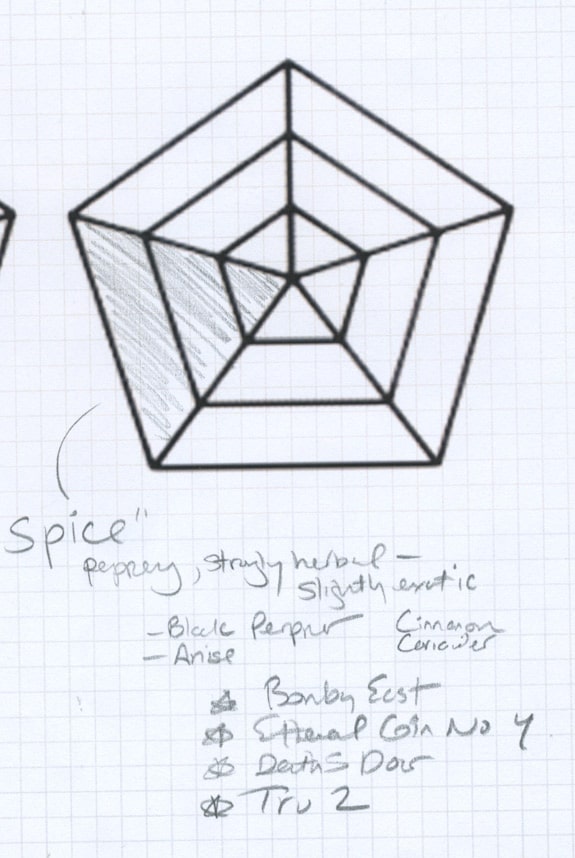 Spice"
peppery, strongly herbal –
slightly exotic
– Black Pepper Cinnamon
– Anise Coriander
Bombay East
No 4
Deaths Door
Tru 2